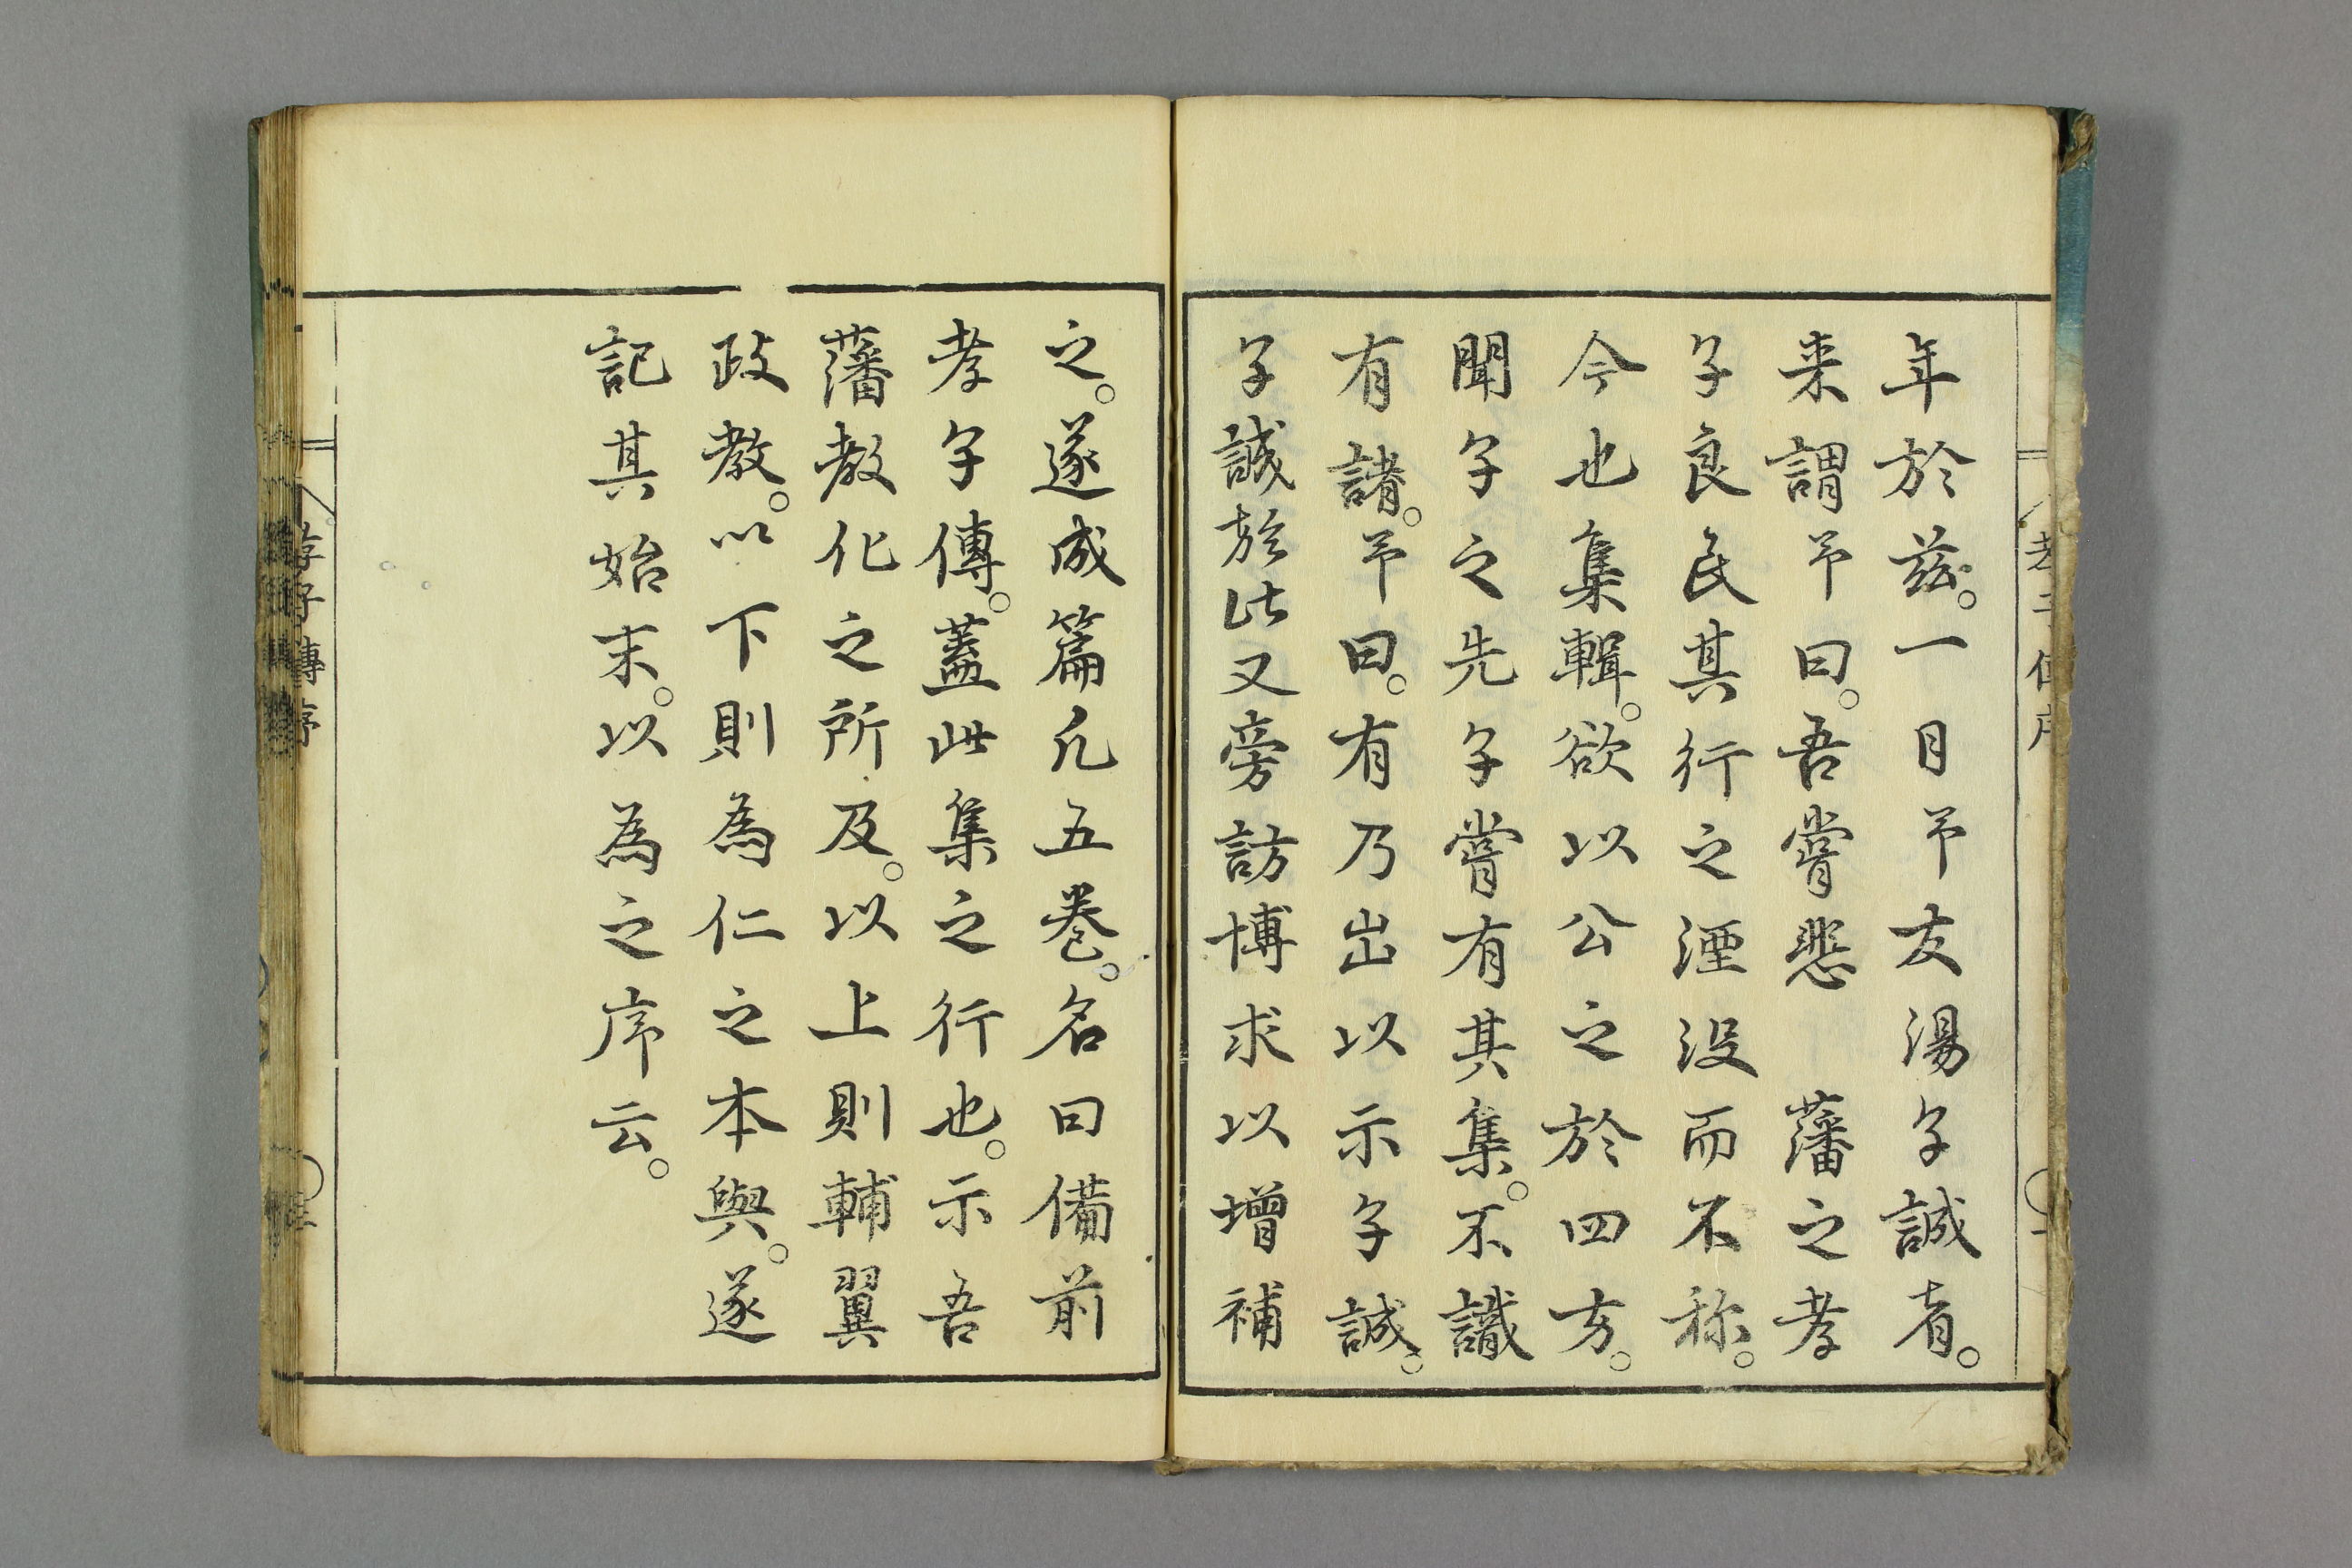 年於茲。一日予友湯子誠者。
来謂予曰。吾嘗悲　藩之孝
子良民其行之湮没而不称。
今也集輯。欲以公之於四方。
聞子之先子嘗有其集。不識
有諸。予曰。有乃出以示子誠。
子誠於此又旁訪博求以增補
之。遂成篇凢五巻。名曰備前
孝子傳。蓋此集之行也。示吾
藩教化之所及。以上則輔翼
政教。以下則為仁之本與。遂
記其始末。以為之序云。
孝子傳序